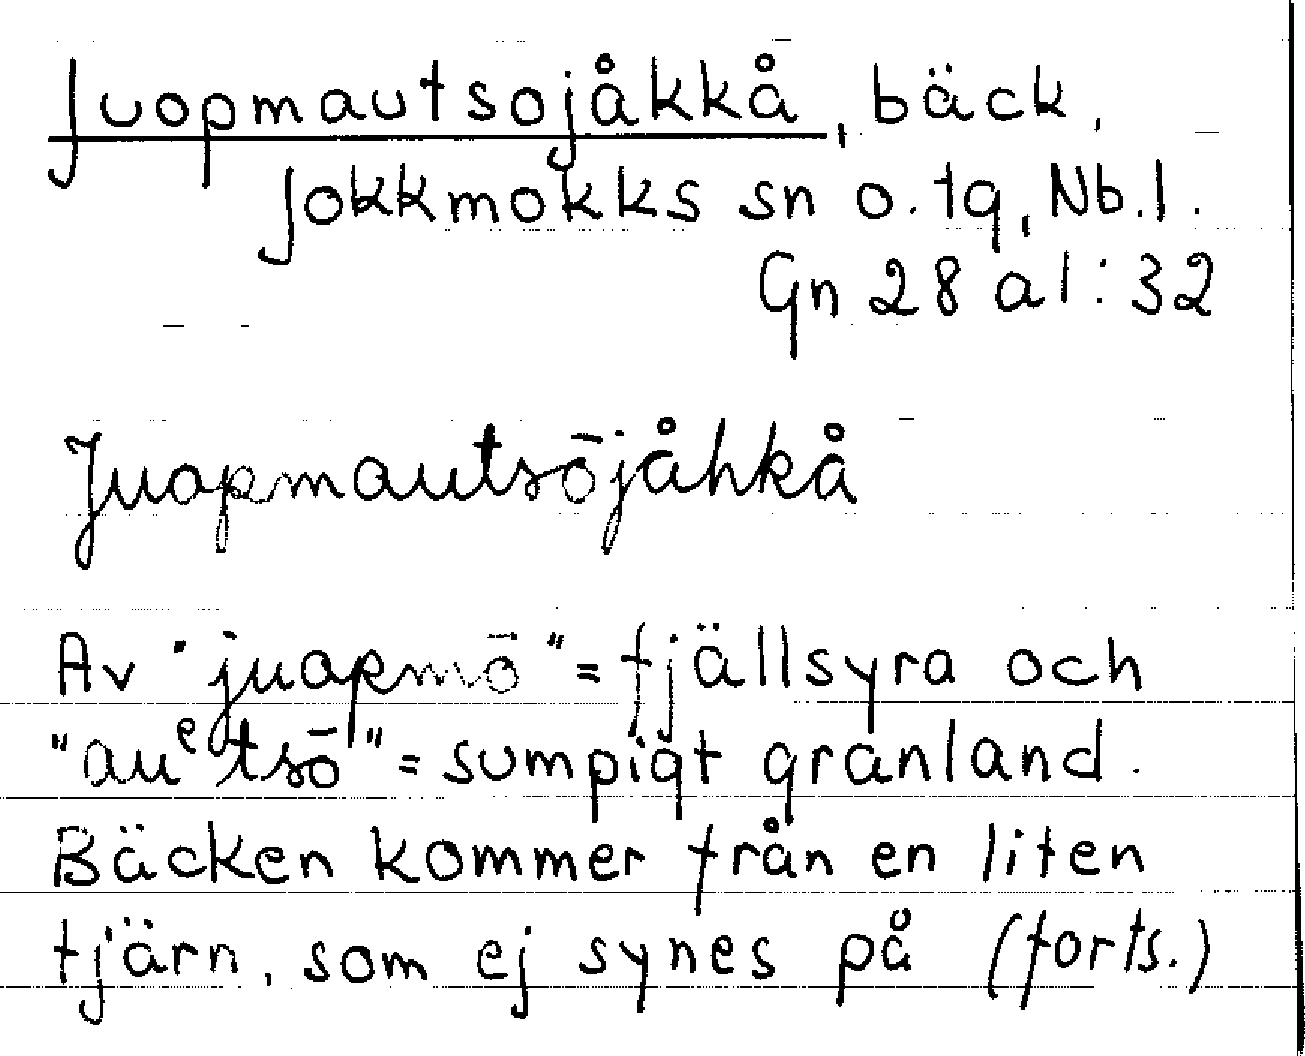 Juopmautsojåkkå, bäck,
Jokkmokks sn o. tg, Nb.l.
Gn 28 al:32
Juapmautsōjåhkå
Av "juapmō" = fjällsyra och
"auᵉtsō" = sumpigt granland.
Bäcken kommer från en liten
tjärn, som ej synes på (forts.)